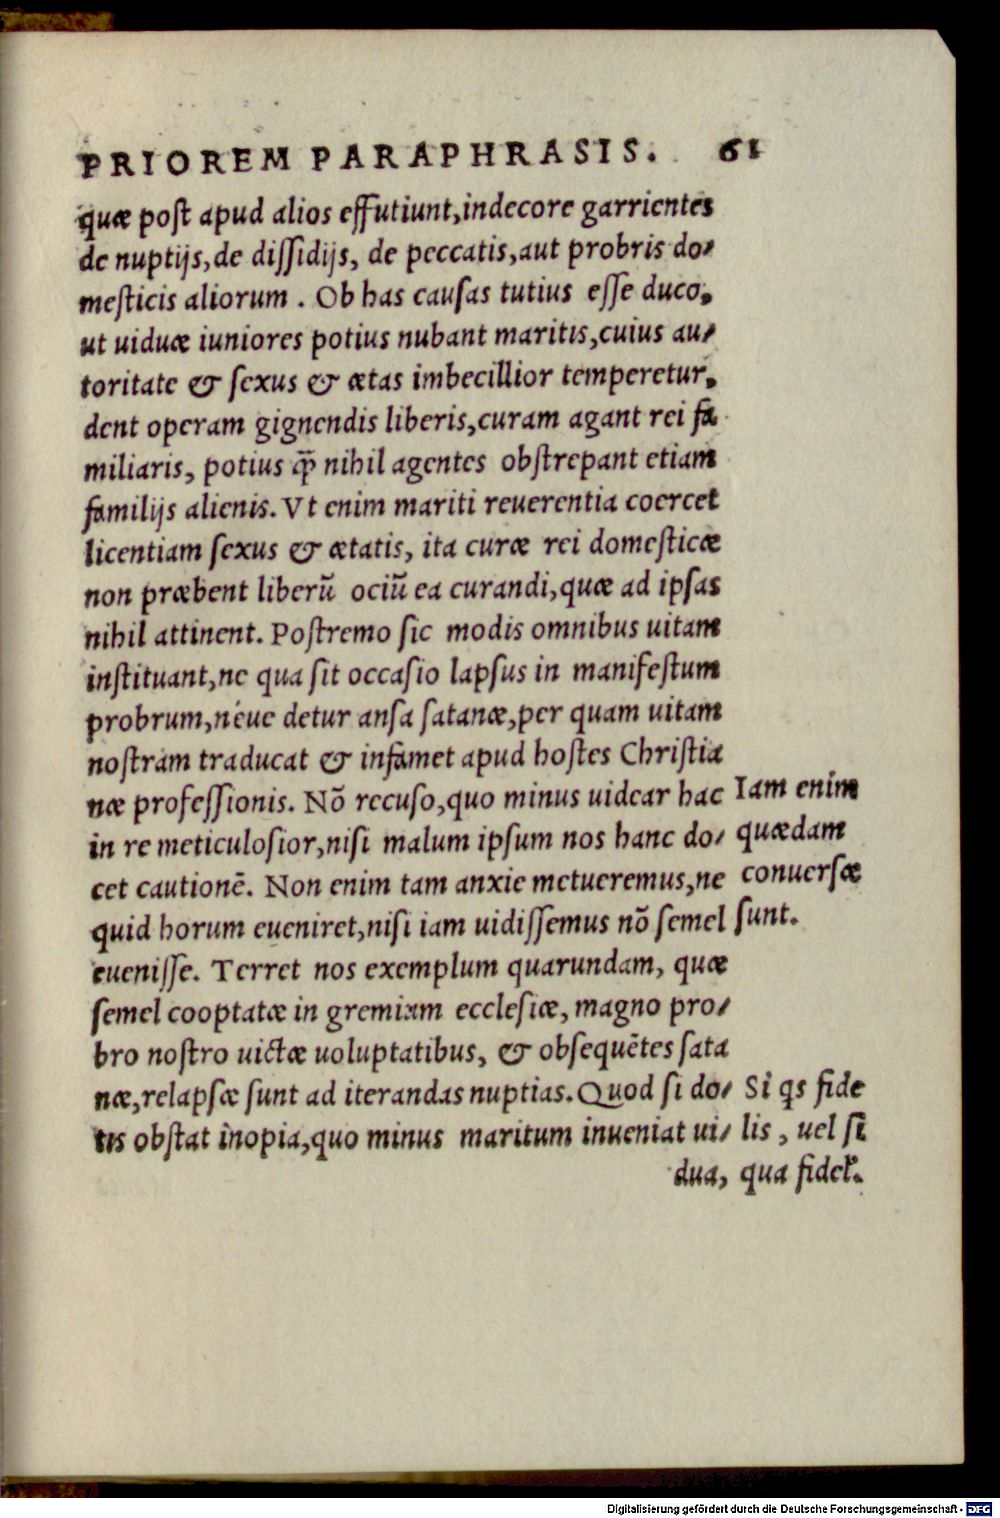 PRIOREM PARAPHRASIS. 61
quæ poſt apud alios effutiunt,indecore garrientes
de nuptijs,de diſſidijs, de peccatis,aut probris do⸗
meſticis aliorum . Ob has cauſas tutius eſſe duco,
ut uiduæ iuniores potius nubant maritis,cuius au⸗
toritate & ſexus & ætas imbecillior temperetur,
dent operam gignendis liberis,curam agant rei fa
miliaris, potius q̃ nihil agentes obſtrepant etiam
familijs alienis. Vt enim mariti reuerentia coercet
licentiam ſexus & ætatis, ita curæ rei domeſticæ
non præbent liberũ ociũ ea curandi,quæ ad ipſas
nihil attinent. Poſtremo ſic modis omnibus uitam
inſtituant,ne qua ſit occaſio lapſus in manifeſtum
probrum,néue detur anſa ſatanæ,per quam uitam
noſtram traducat & infamet apud hoſtes Chriſtia
næ profeſſionis. Nõ recuſo,quo minus uidear hac
in re meticuloſior,niſi malum ipſum nos hanc do⸗
cet cautionẽ. Non enim tam anxie metueremus,ne
quid horum eueniret,niſi iam uidiſſemus nõ ſemel
eueniſſe. Terret nos exemplum quarundam, quæ
ſemel cooptatæ in gremium eccleſiæ, magno pro⸗
bro noſtro uictæ uoluptatibus, & obſequẽtes ſata
næ,relapſæ ſunt ad iterandas nuptias. Quod ſi do⸗
tis obſtat inopia,quo minus maritum inueniat ui⸗
dua,
Iam enim
quædam
conuerſæ
ſunt.
Si qs fide
lis , uel ſi
qua fidel̃.
Digitalisierung gefördert durch die Deutsche Forschungsgemeinschaft - DFG